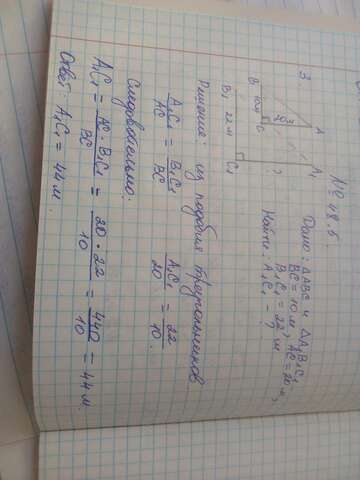 № 48.5
3
Дано: △ABC и △A₁B₁C₁
BC = 10 м, AC = 20 м,
B₁C₁ = 22 м
Найти: A₁C₁ - ?
A
B
10 м
C
A₁
?
B₁ 22 м C₁
Решение: из подобия треугольников
A₁C₁/AC = B₁C₁/BC    A₁C₁/20 = 22/10.
Следовательно:
A₁C₁ = AC · B₁C₁/BC = 20 · 22/10 = 440/10 = 44 м.
Ответ: A₁C₁ = 44 м.